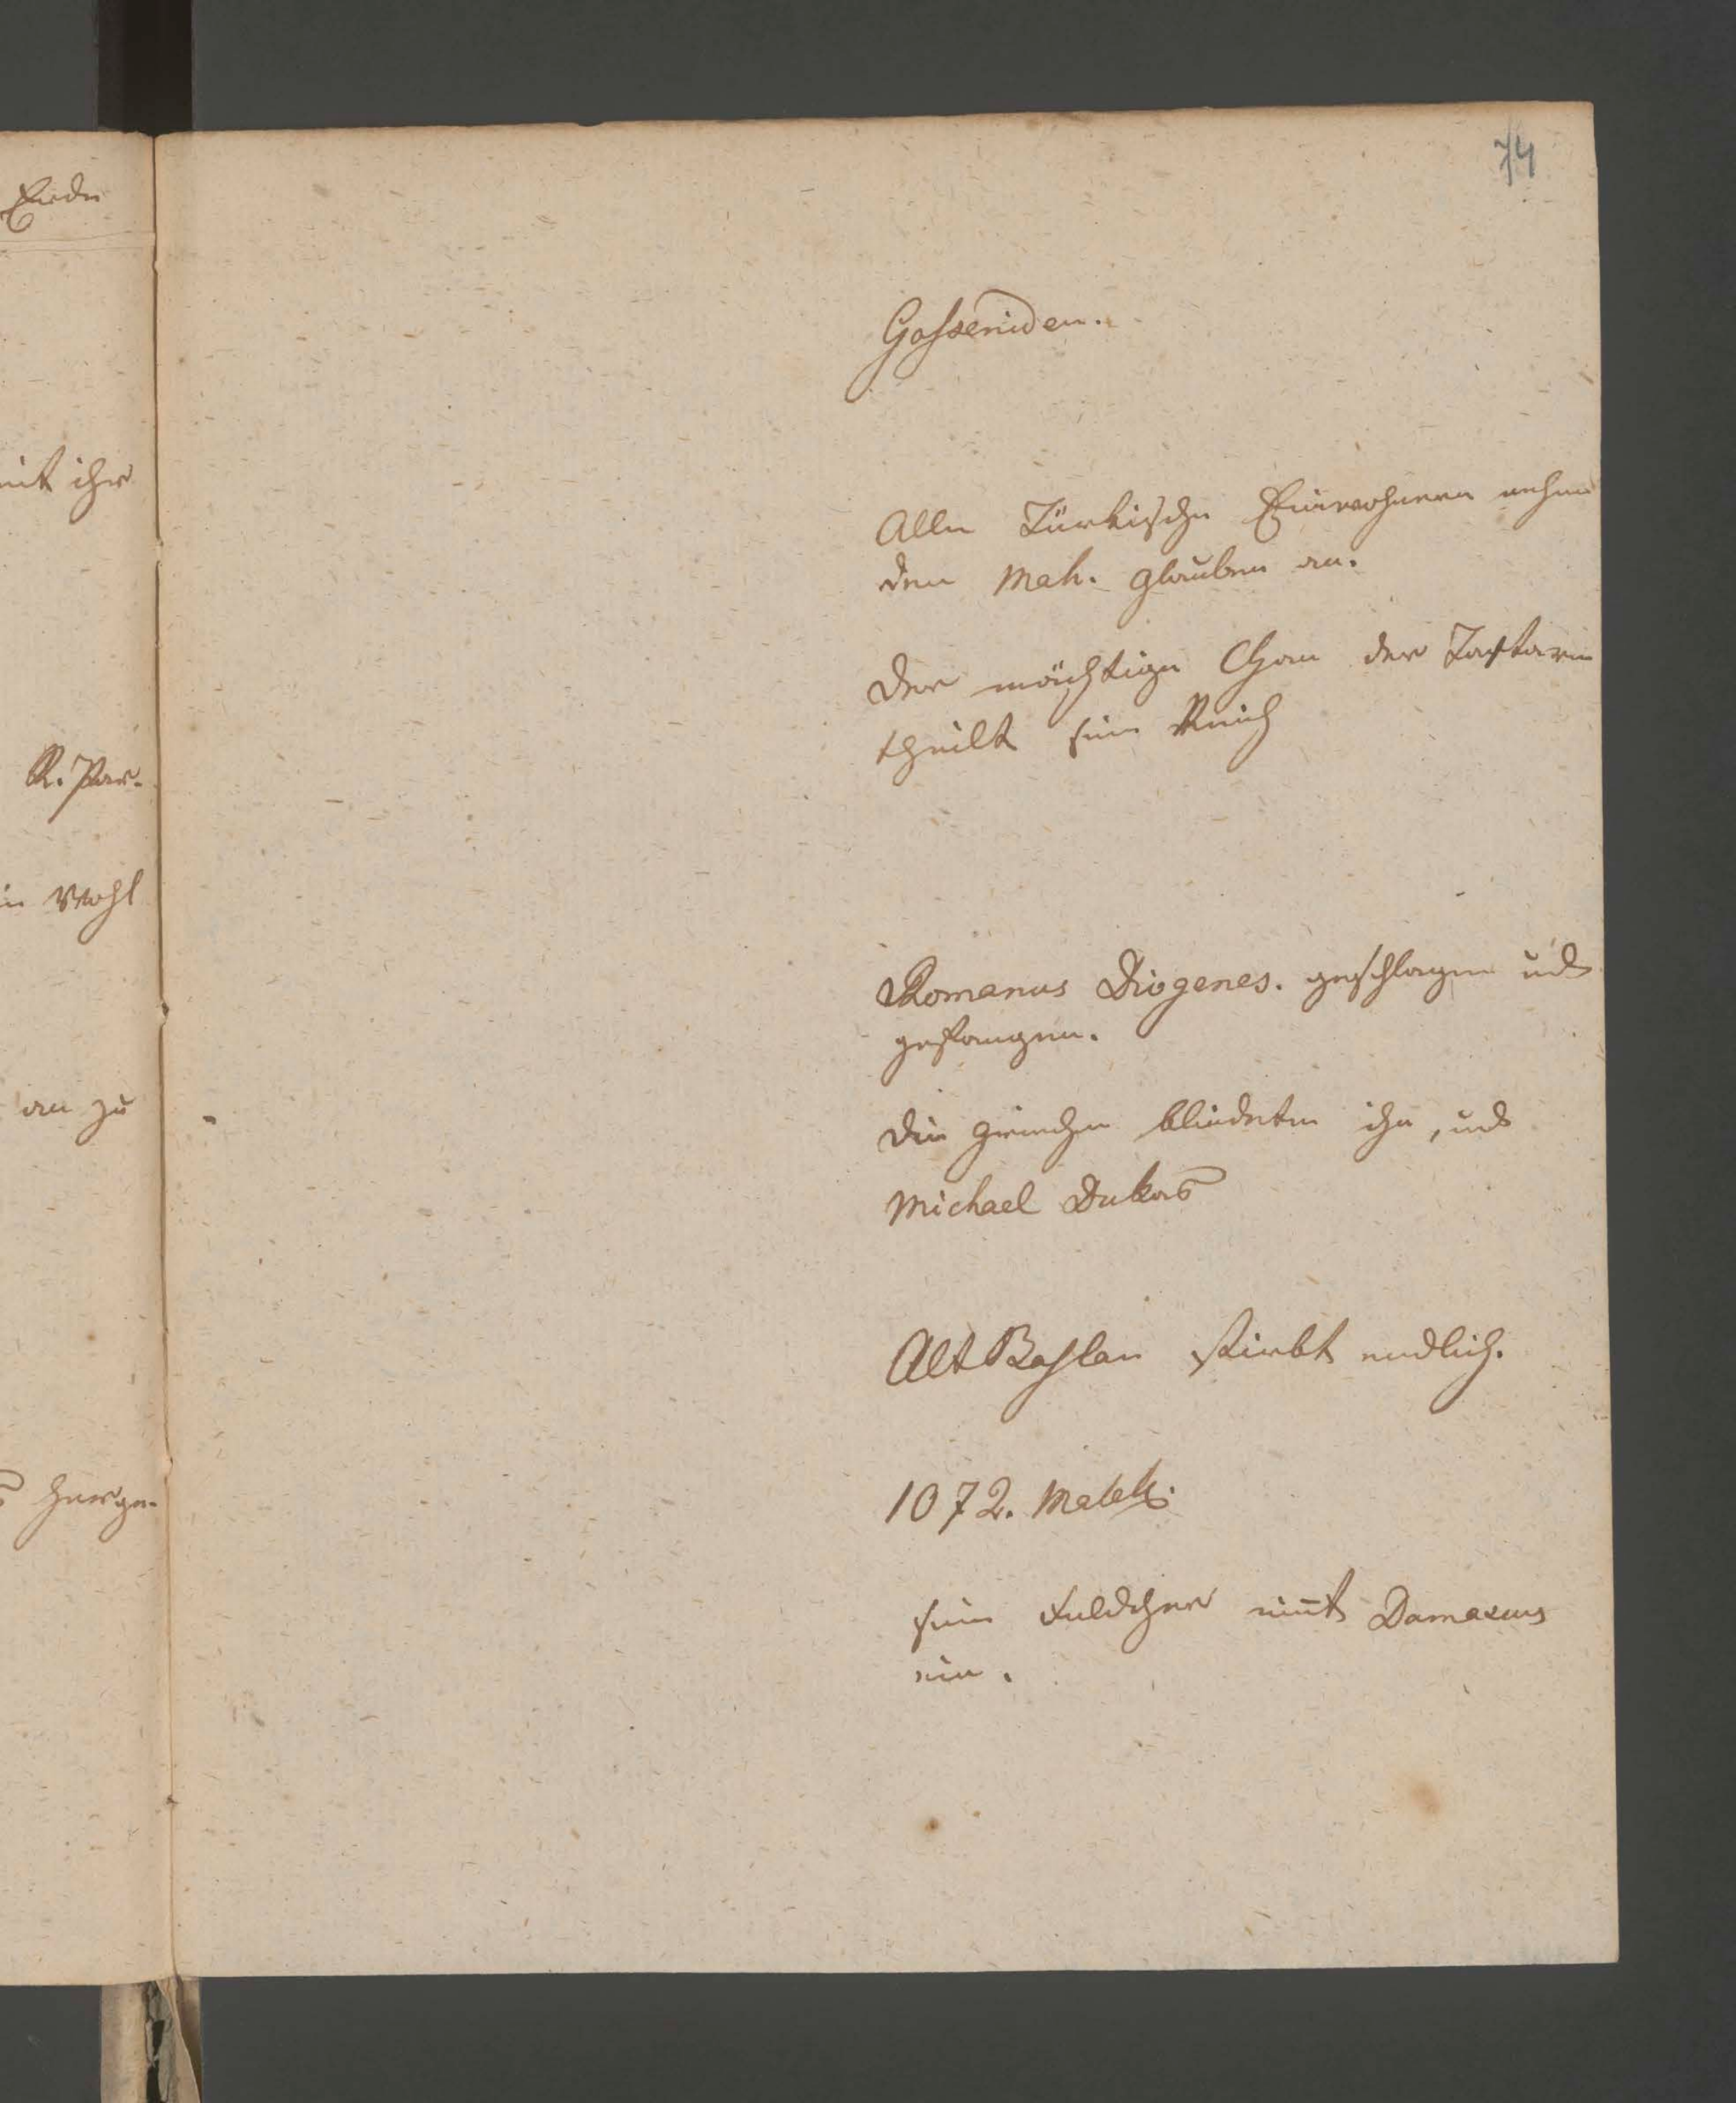 74
Gaszeniden.
Alle Türkische Einwohnern nehmen
den Mah. Glauben an.
Der mächtige Chan der Tartarn
theilt sein Reich
Romanus Diogenes. geschlagen und
gefangen.
Die Griechen blindeten ihn, und
Michael Dukas
Alt Baslan stirbt endlich.
1072. Malek.
sein Feldherr nim̅t Damascus
ein.
Ende
mit ihr
R. Par-
in Wahl
an zu
herge-